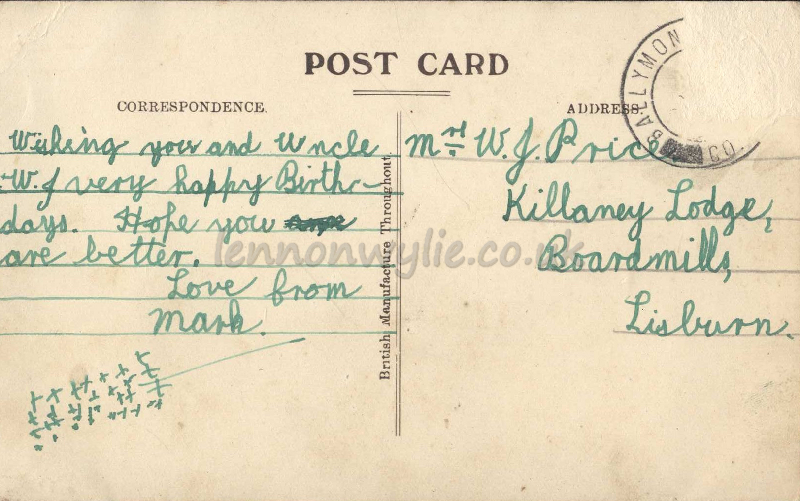 POST CARD
CORRESPONDENCE.
Wishing you and Uncle
W. J very happy Birth-
days. Hope you
are better.
Love from
Mark.
British Manufacture Throughout.
ADDRESS.
Mrs W. J. Price
Killaney Lodge,
Boardmills,
Lisburn.
BALLYMON
CO.
lennonwylie.co.uk